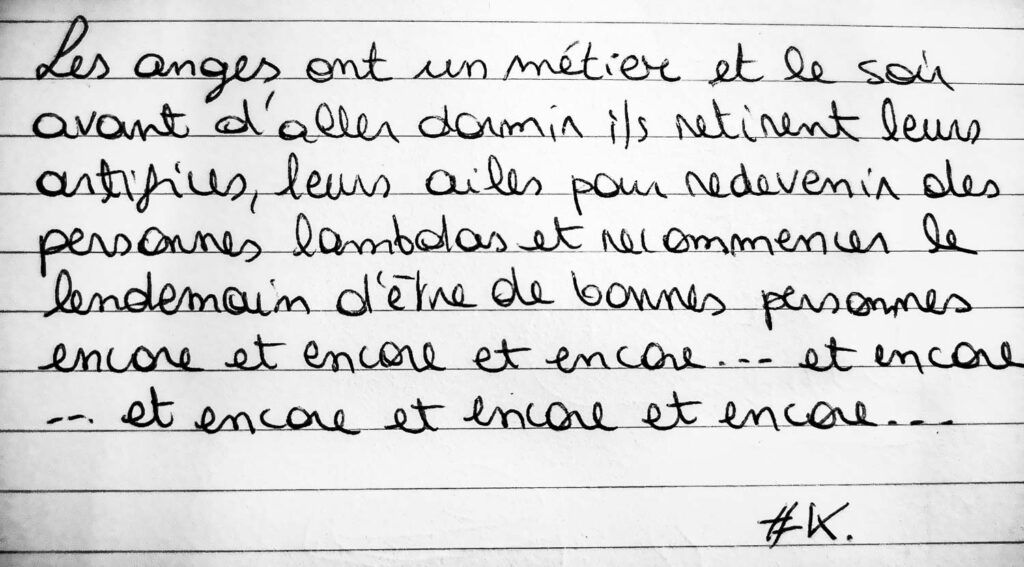 Les anges ont un métier et le soir
avant d'aller dormir ils retirent leurs
artifices, leurs ailes pour redevenir des
personnes lambdas et recommencer le
lendemain d'être de bonnes personnes
encore et encore et encore... et encore
... et encore et encore et encore...
#K.